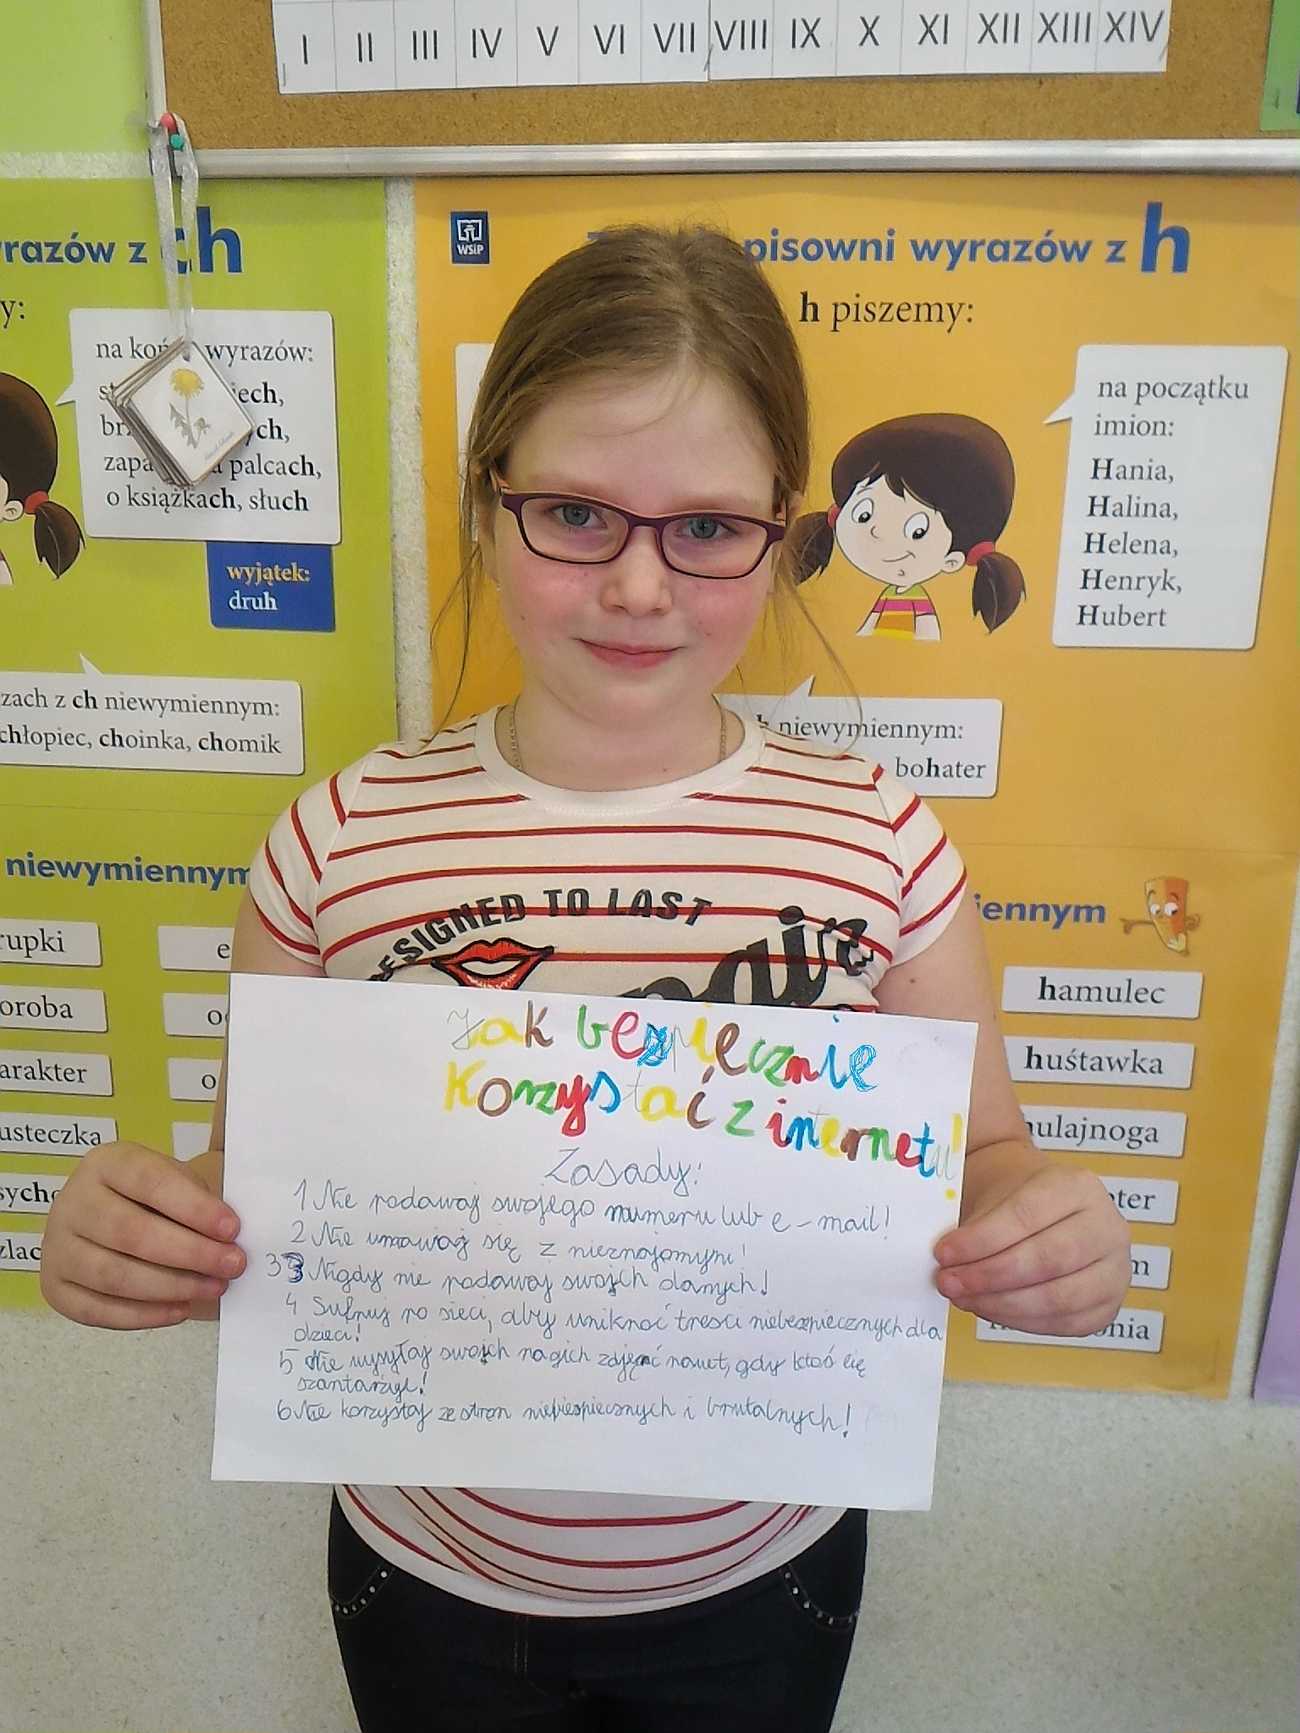 I II III IV V VI VII VIII IX X XI XII XIII XIV
wyrazów z ch
na wyrazów:
palcach,
o książkach, słuch
wyjątek:
druh
z ch niewymiennym:
chłopiec, choinka, chomik
niewymiennym
WSiP
pisowni wyrazów z h
h piszemy:
na początku
imion:
Hania,
Halina,
Helena,
Henryk,
Hubert
h niewymiennym:
bohater
hamulec
huśtawka
DESIGNED TO LAST
Jak bezpiecznie
Korzystać z internetu!
Zasady:
1 Nie podawaj swojego numeru lub e-mail!
2 Nie umawiaj się z nieznajomymi!
3 Nigdy nie podawaj swoich danych!
4 Surfuj po sieci, aby uniknąć treści niebezpiecznych dla
dzieci!
5 Nie wysyłaj swoich nagich zdjęć nawet, gdy ktoś cię
szantażuje!
6 Nie korzystaj ze stron niebezpiecznych i brutalnych!